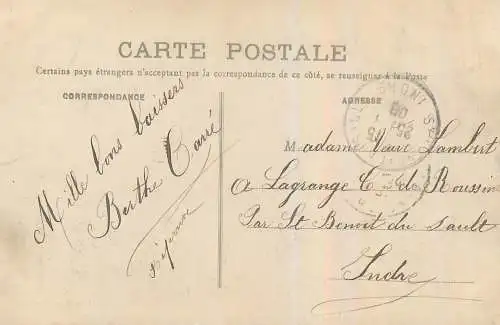 CARTE POSTALE
Certains pays étrangers n'acceptant pas la correspondance de ce côté, se renseigner à la Poste
CORRESPONDANCE
ADRESSE
Mille bons baisers
Berthe Carré
Réponse
Madame Veuve Lambert
a Lagrange Cne de Roussines
Par St Benoit du Sault
Indre